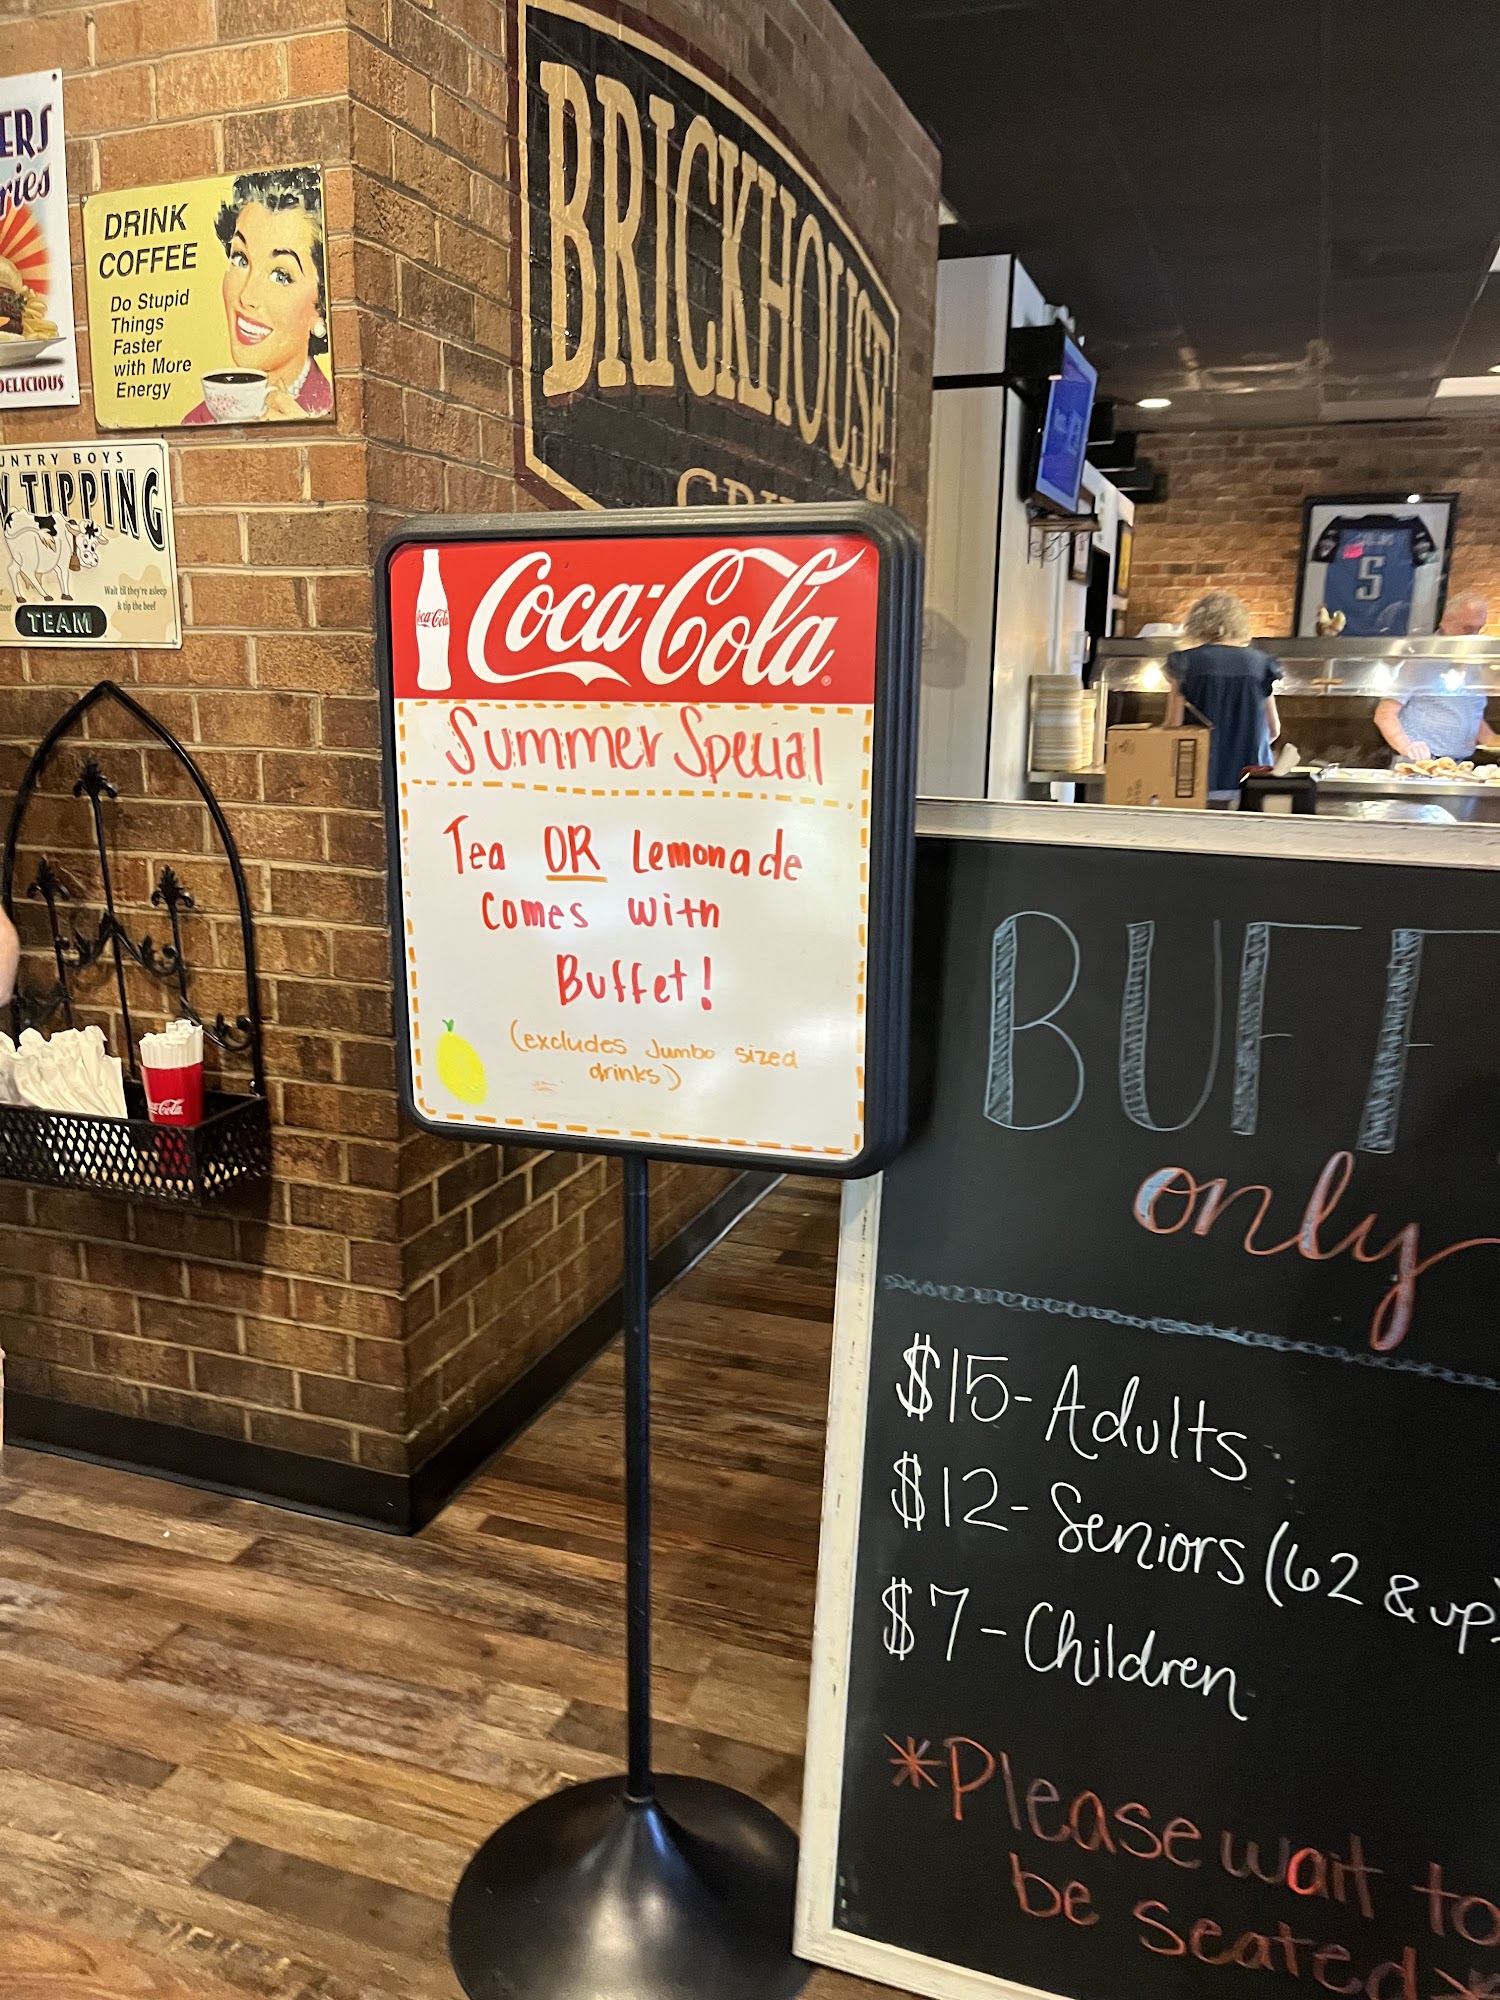 ERS
ries
DELICIOUS
DRINK
COFFEE
Do Stupid
Things
Faster
with More
Energy
UNTRY BOYS
TIPPING
Wait til they're asleep
& tip the beef
TEAM
BRICKHOUSE
Coca-Cola
Coca-Cola
Summer Special
Tea OR Lemonade
Comes with
Buffet!
(excludes Jumbo sized
drinks)
Coca-Cola
5
BUFF
only
$15-Adults
$12-Seniors (62 & up)
$7-Children
*Please wait to
be seated*